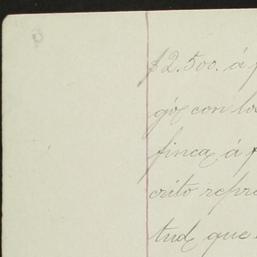 $2.500. á
gó con lo
finca á
crito repre
tud que